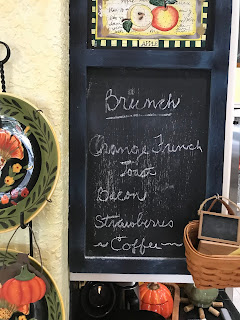 APPLE
Brunch
Orange French
Toast
Bacon
Strawberries
~ Coffee ~